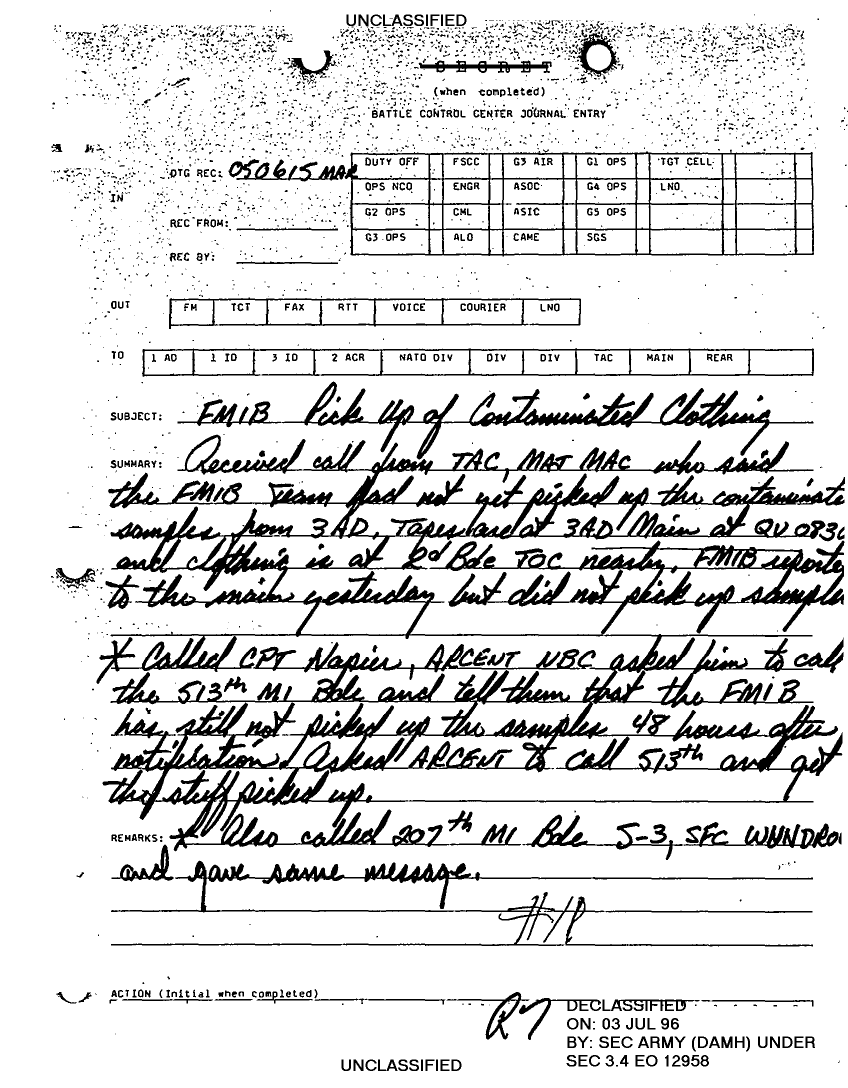 UNCLASSIFIED
SECRET
(when completed)
BATTLE CONTROL CENTER JOURNAL ENTRY
IN
DTG REC: 050615 MAR
REC FROM:
REC BY:
DUTY OFF FSCC G3 AIR G1 OPS TGT CELL
OPS NCO ENGR ASOC G4 OPS LNO
G2 OPS CML ASIC G5 OPS
G3 OPS ALO CAME SGS
OUT FM TCT FAX RTT VOICE COURIER LNO
TO 1 AD 1 ID 3 ID 2 ACR NATO DIV DIV DIV TAC MAIN REAR
SUBJECT: FMIB Pick Up of Contaminated Clothing
SUMMARY: Received call from TAC, MAT MAC who said
the FMIB Team had not yet picked up the contaminate
samples from 3AD. Tapes are at 3AD Main at QU 0830
and clothing is at 2d Bde TOC nearby. FMIB reporte
to the main yesterday but did not pick up sample
* Called CPT Napier, ARCENT NBC asked him to call
the 513th MI Bde and tell them that the FMIB
has still not picked up the samples 48 hours after
notification. Asked ARCENT to call 513th and get
the stuff picked up.
REMARKS: * Also called 207th MI Bde S-3, SFC
and gave same message.
ACTION (Initial when completed)
DECLASSIFIED
ON: 03 JUL 96
BY: SEC ARMY (DAMH) UNDER
SEC 3.4 EO 12958
UNCLASSIFIED